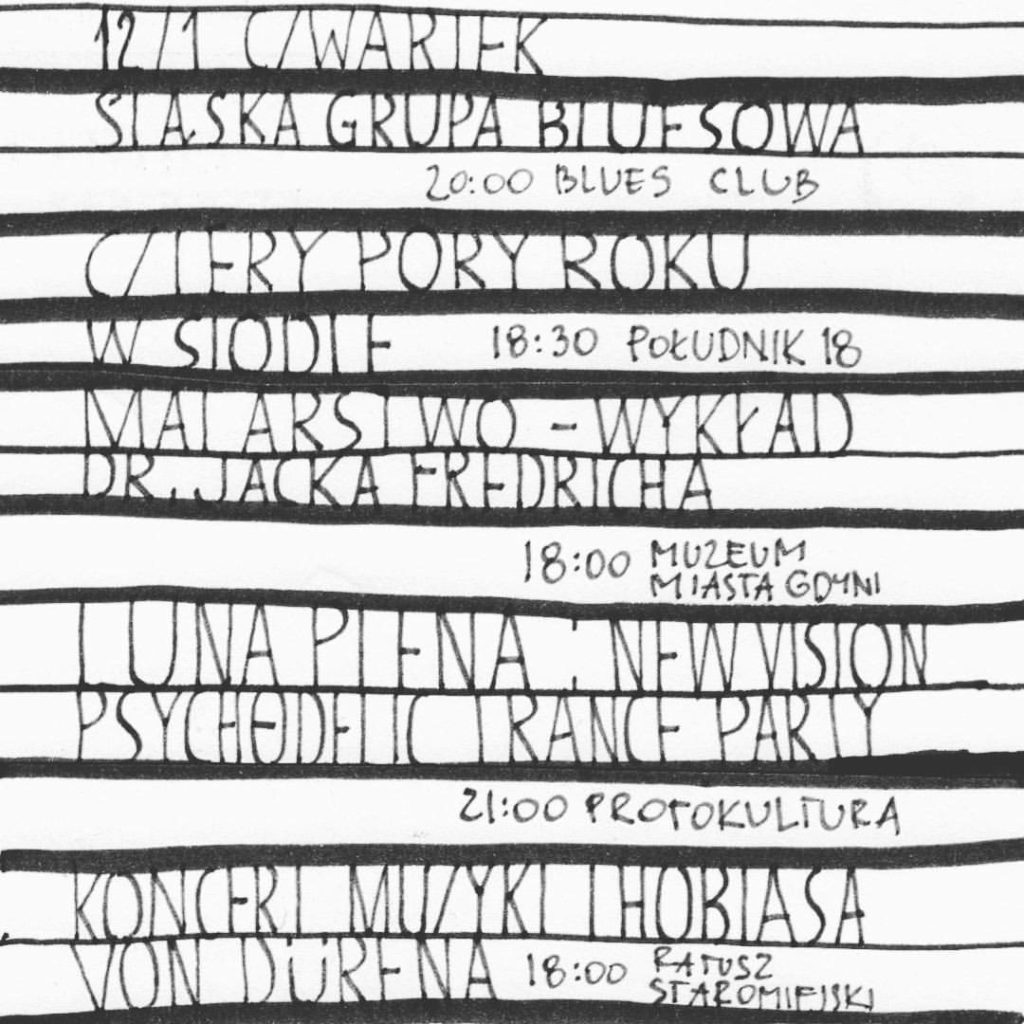 12/1 CZWARTEK
ŚLĄSKA GRUPA BLUESOWA
20:00 BLUES CLUB
CZTERY PORY ROKU
W SIODLE 18:30 POŁUDNIK 18
MALARSTWO - WYKŁAD
DR. JACKA FREDRICHA
18:00 MUZEUM
MIASTA GDYNI
LUNA PLENA : NEW VISION
PSYCHODELIC TRANCE PARTY
21:00 PROTOKULTURA
KONCERT MUZYKI THOBIASA
VON DÜRENA 18:00 RATUSZ
STAROMIEJSKI